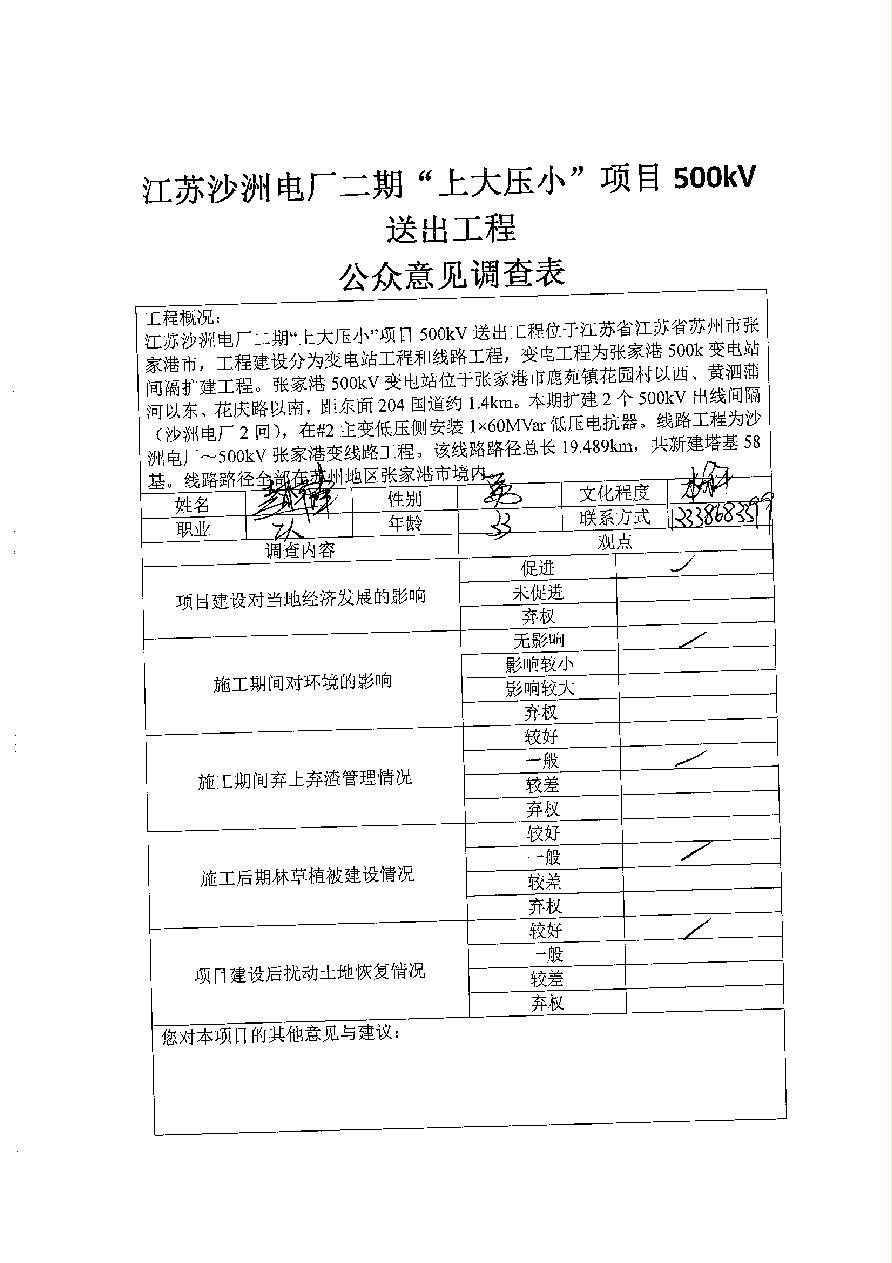 江苏沙洲电厂二期“上大压小”项目 500kV
送出工程
公众意见调查表
工程概况：
江苏沙洲电厂二期“上大压小”项目 500kV 送出工程位于江苏省江苏省苏州市张
家港市，工程建设分为变电站工程和线路工程，变电工程为张家港 500k 变电站
间隔扩建工程。张家港 500kV 变电站位于张家港市鹿苑镇花园村以西、黄泗浦
河以东、花庆路以南，距东面 204 国道约 1.4km。本期扩建 2 个 500kV 出线间隔
（沙洲电厂 2 间），在#2 主变低压侧安装 1×60MVar 低压电抗器。线路工程为沙
洲电厂～500kV 张家港变线路工程。该线路路径总长 19.489km，共新建塔基 58
基。线路路径全部在苏州地区张家港市境内。
姓名 性别 男 文化程度 本科
职业 工人 年龄 33 联系方式
调查内容 观点
项目建设对当地经济发展的影响
促进 ✓
未促进
弃权
施工期间对环境的影响
无影响 ✓
影响较小
影响较大
弃权
施工期间弃土弃渣管理情况
较好
一般 ✓
较差
弃权
施工后期林草植被建设情况
较好
一般 ✓
较差
弃权
项目建设后扰动土地恢复情况
较好 ✓
一般
较差
弃权
您对本项目的其他意见与建议：